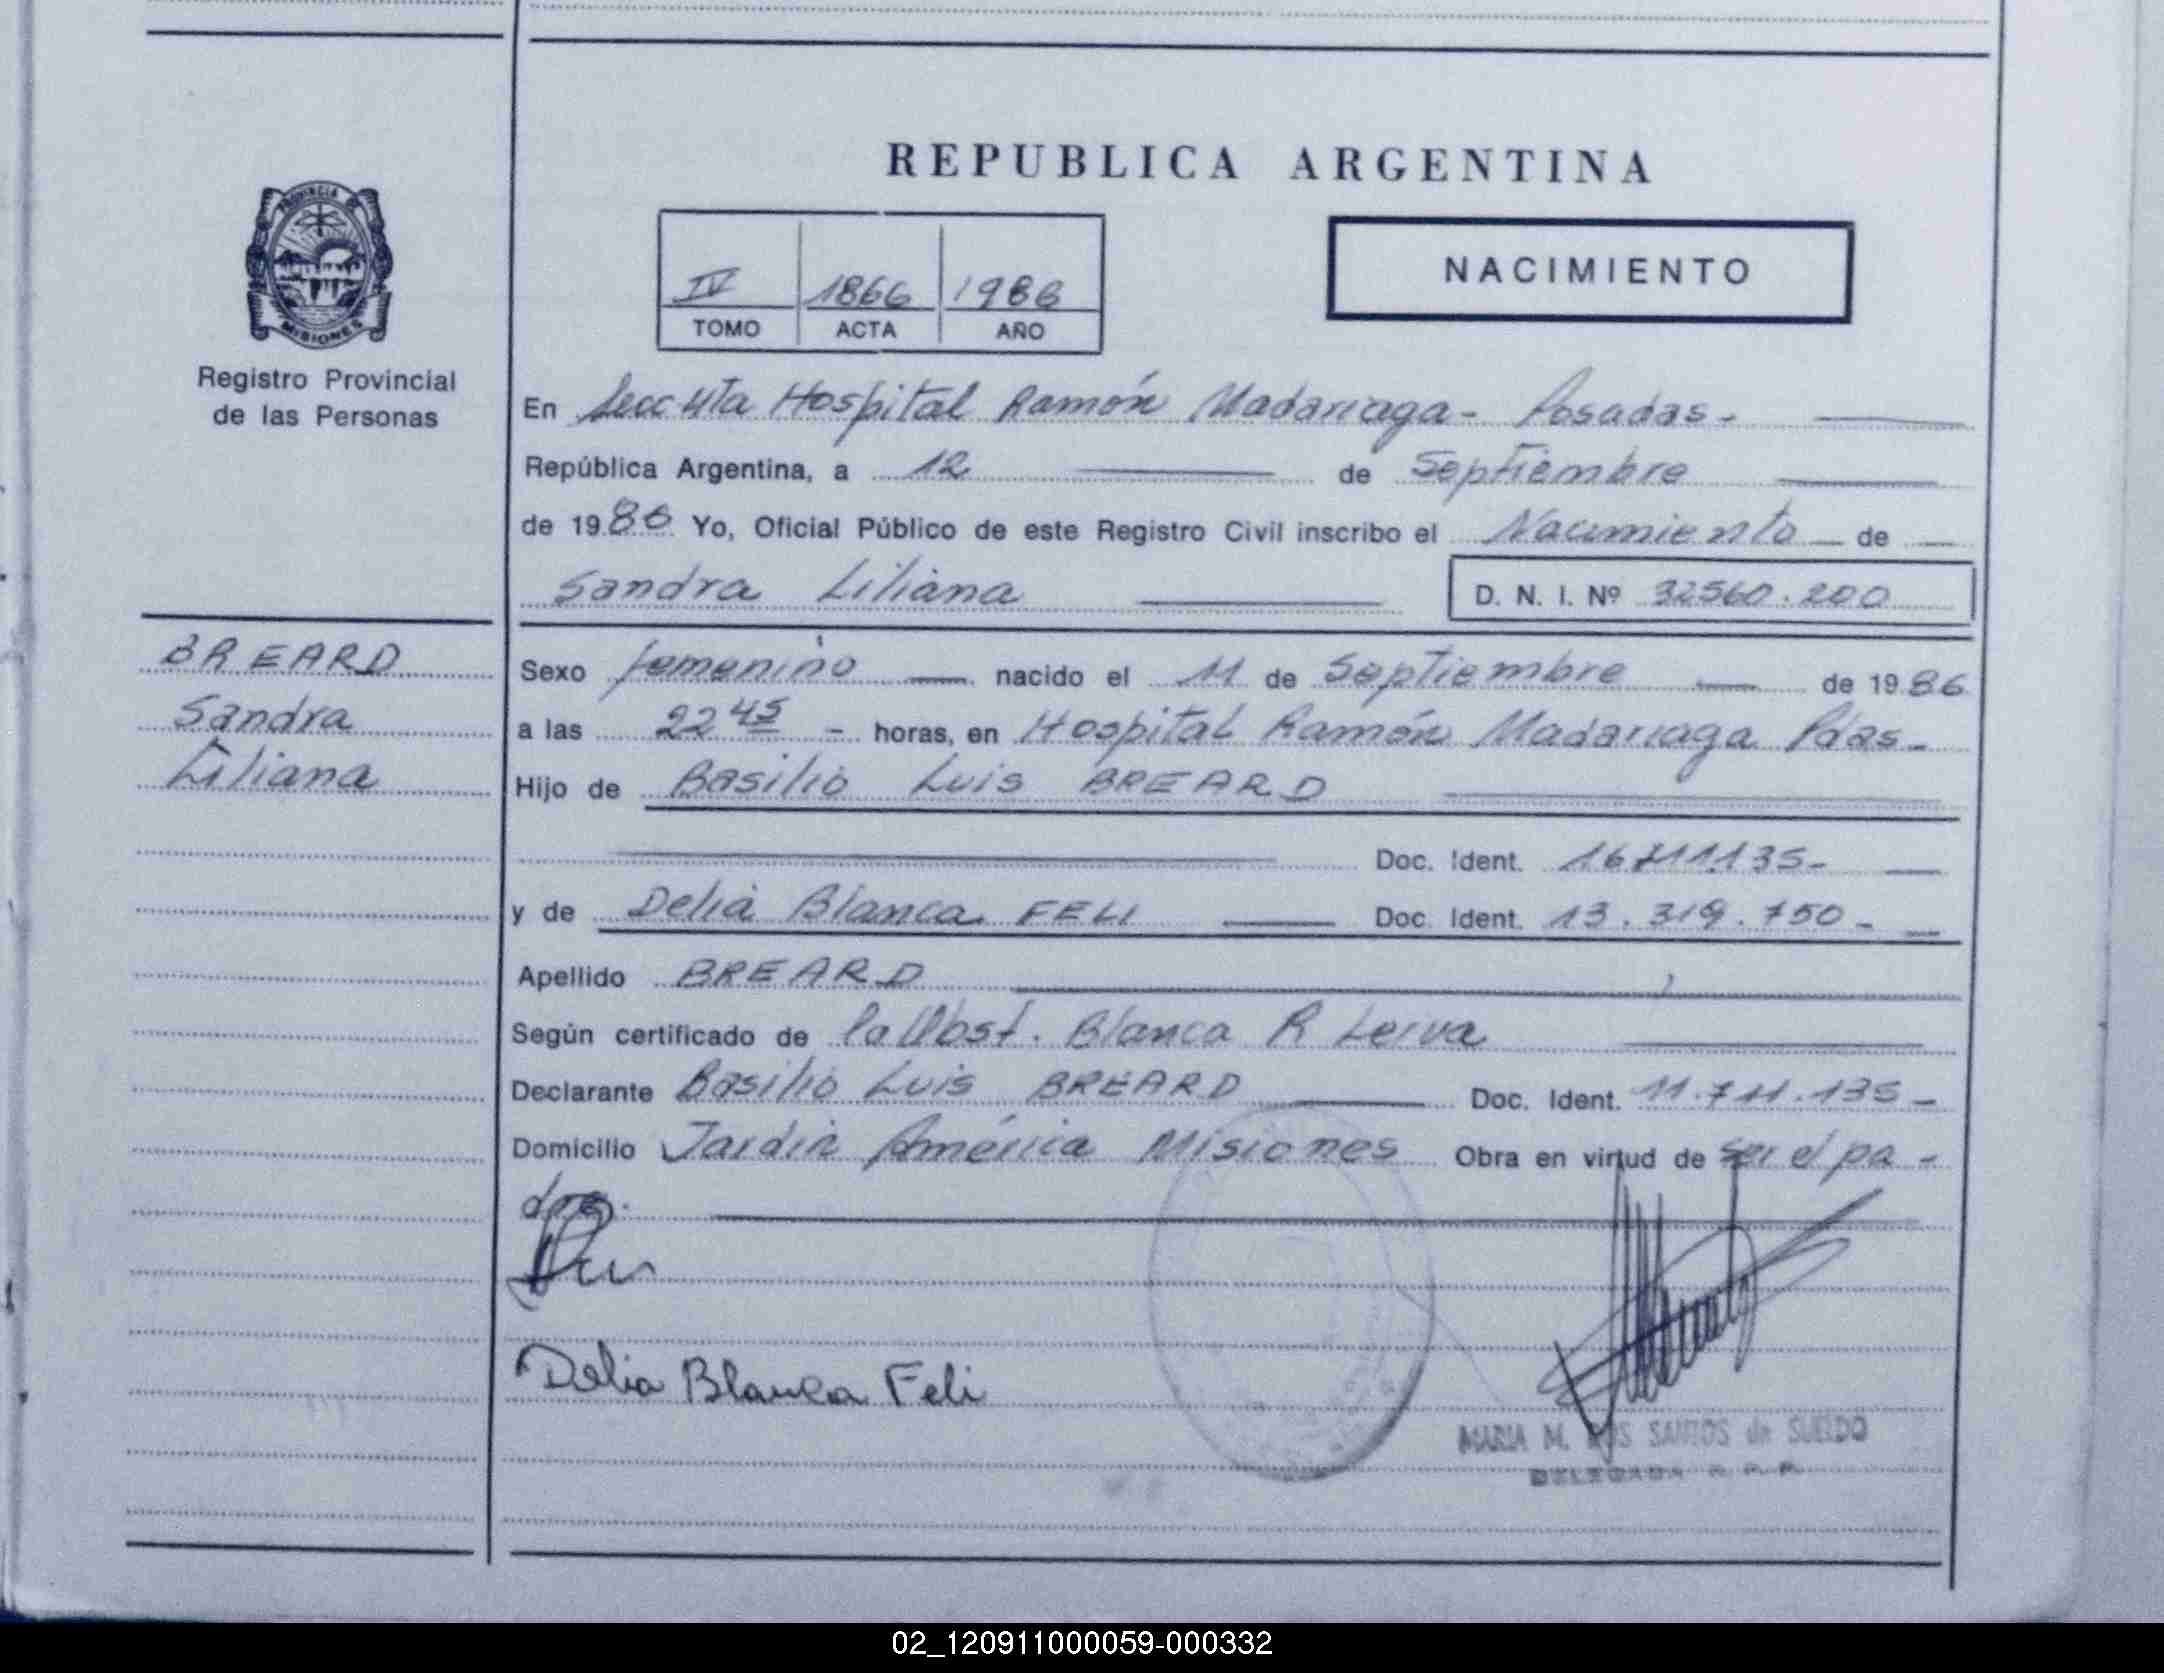 REPUBLICA ARGENTINA
PROVINCIA DE
MISIONES
Registro Provincial
de las Personas
IV 1866 1986
TOMO ACTA AÑO
NACIMIENTO
En Secc 4ta Hospital Ramón Madariaga - Posadas -
República Argentina, a 12 de Septiembre
de 1986 Yo, Oficial Público de este Registro Civil inscribo el Nacimiento de
Sandra Liliana D. N. I. Nº 32560.200
BREARD
Sandra
Liliana
Sexo femenino nacido el 11 de Septiembre de 1986
a las 22 45 - horas, en Hospital Ramón Madariaga Pdas -
Hijo de Basilio Luis BREARD
Doc. Ident. 16711.135 -
y de Delia Blanca FELI Doc. Ident. 13.319.750 -
Apellido BREARD
Según certificado de la Obst. Blanca R Leiva
Declarante Basilio Luis BREARD Doc. Ident. 11.711.135 -
Domicilio Jardin América Misiones Obra en virtud de ser el pa -
dre.
Delia Blanca Feli
MARIA M. DOS SANTOS de SUELDO
DELEGADA
02_120911000059-000332